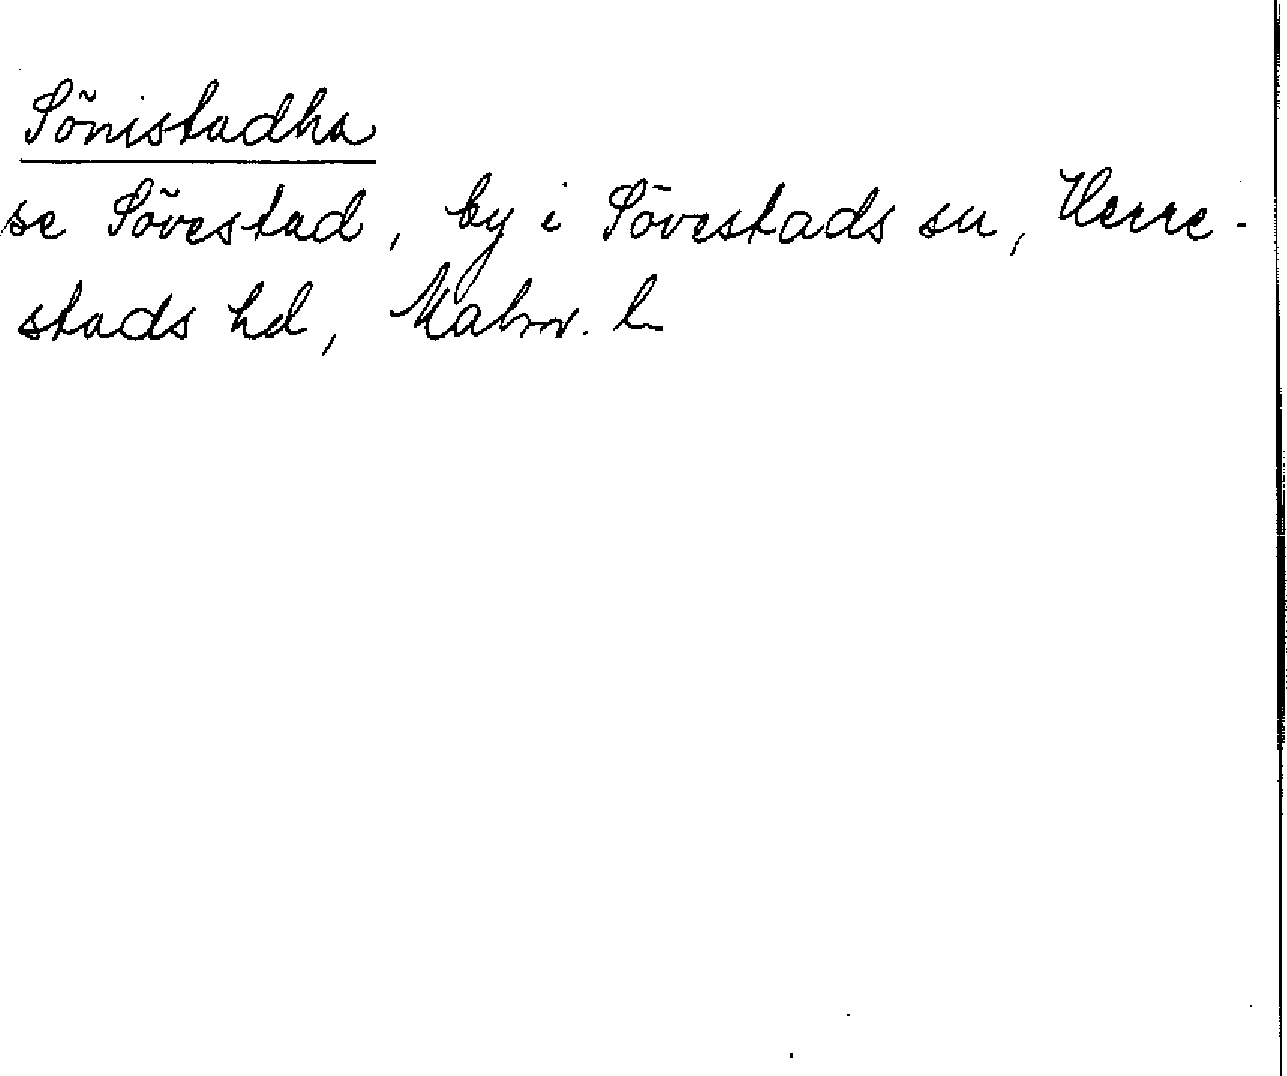 Sönistadha
se Sövestad, by i Sövestads sn, Herre-
stads hd, Malm. l.